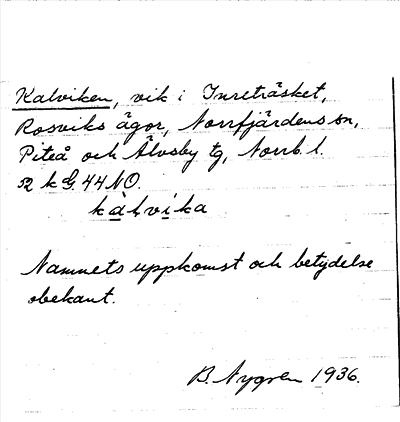 Kalviken, vik i Inreträsket,
Rosviks ägor, Norrfjärdens sn,
Piteå och Älvsby tg, Norrb. l.
R k G. 44 NO.
kàlvika
Namnets uppkomst och betydelse
obekant.
B. Nygren 1936.